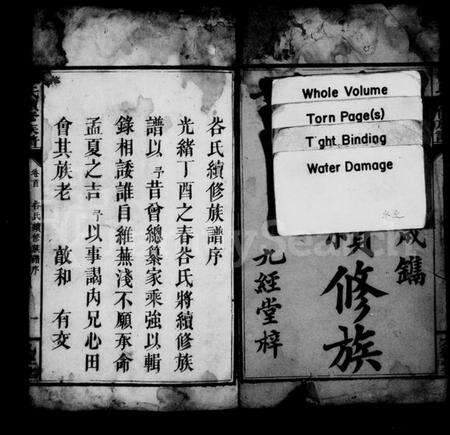 Whole Volume
Torn Page(s)
Tight Binding
Water Damage
鐫
續修族
九經堂梓
谷氏續修族譜序
光緒丁酉之春谷氏將續修族
譜以予昔曾總纂家乘強以輯
錄相諉誰自維蕪淺不願承命
孟夏之吉予以事謁內兄心田
會其族老 敵和 有交
卷首 谷氏續修族譜序